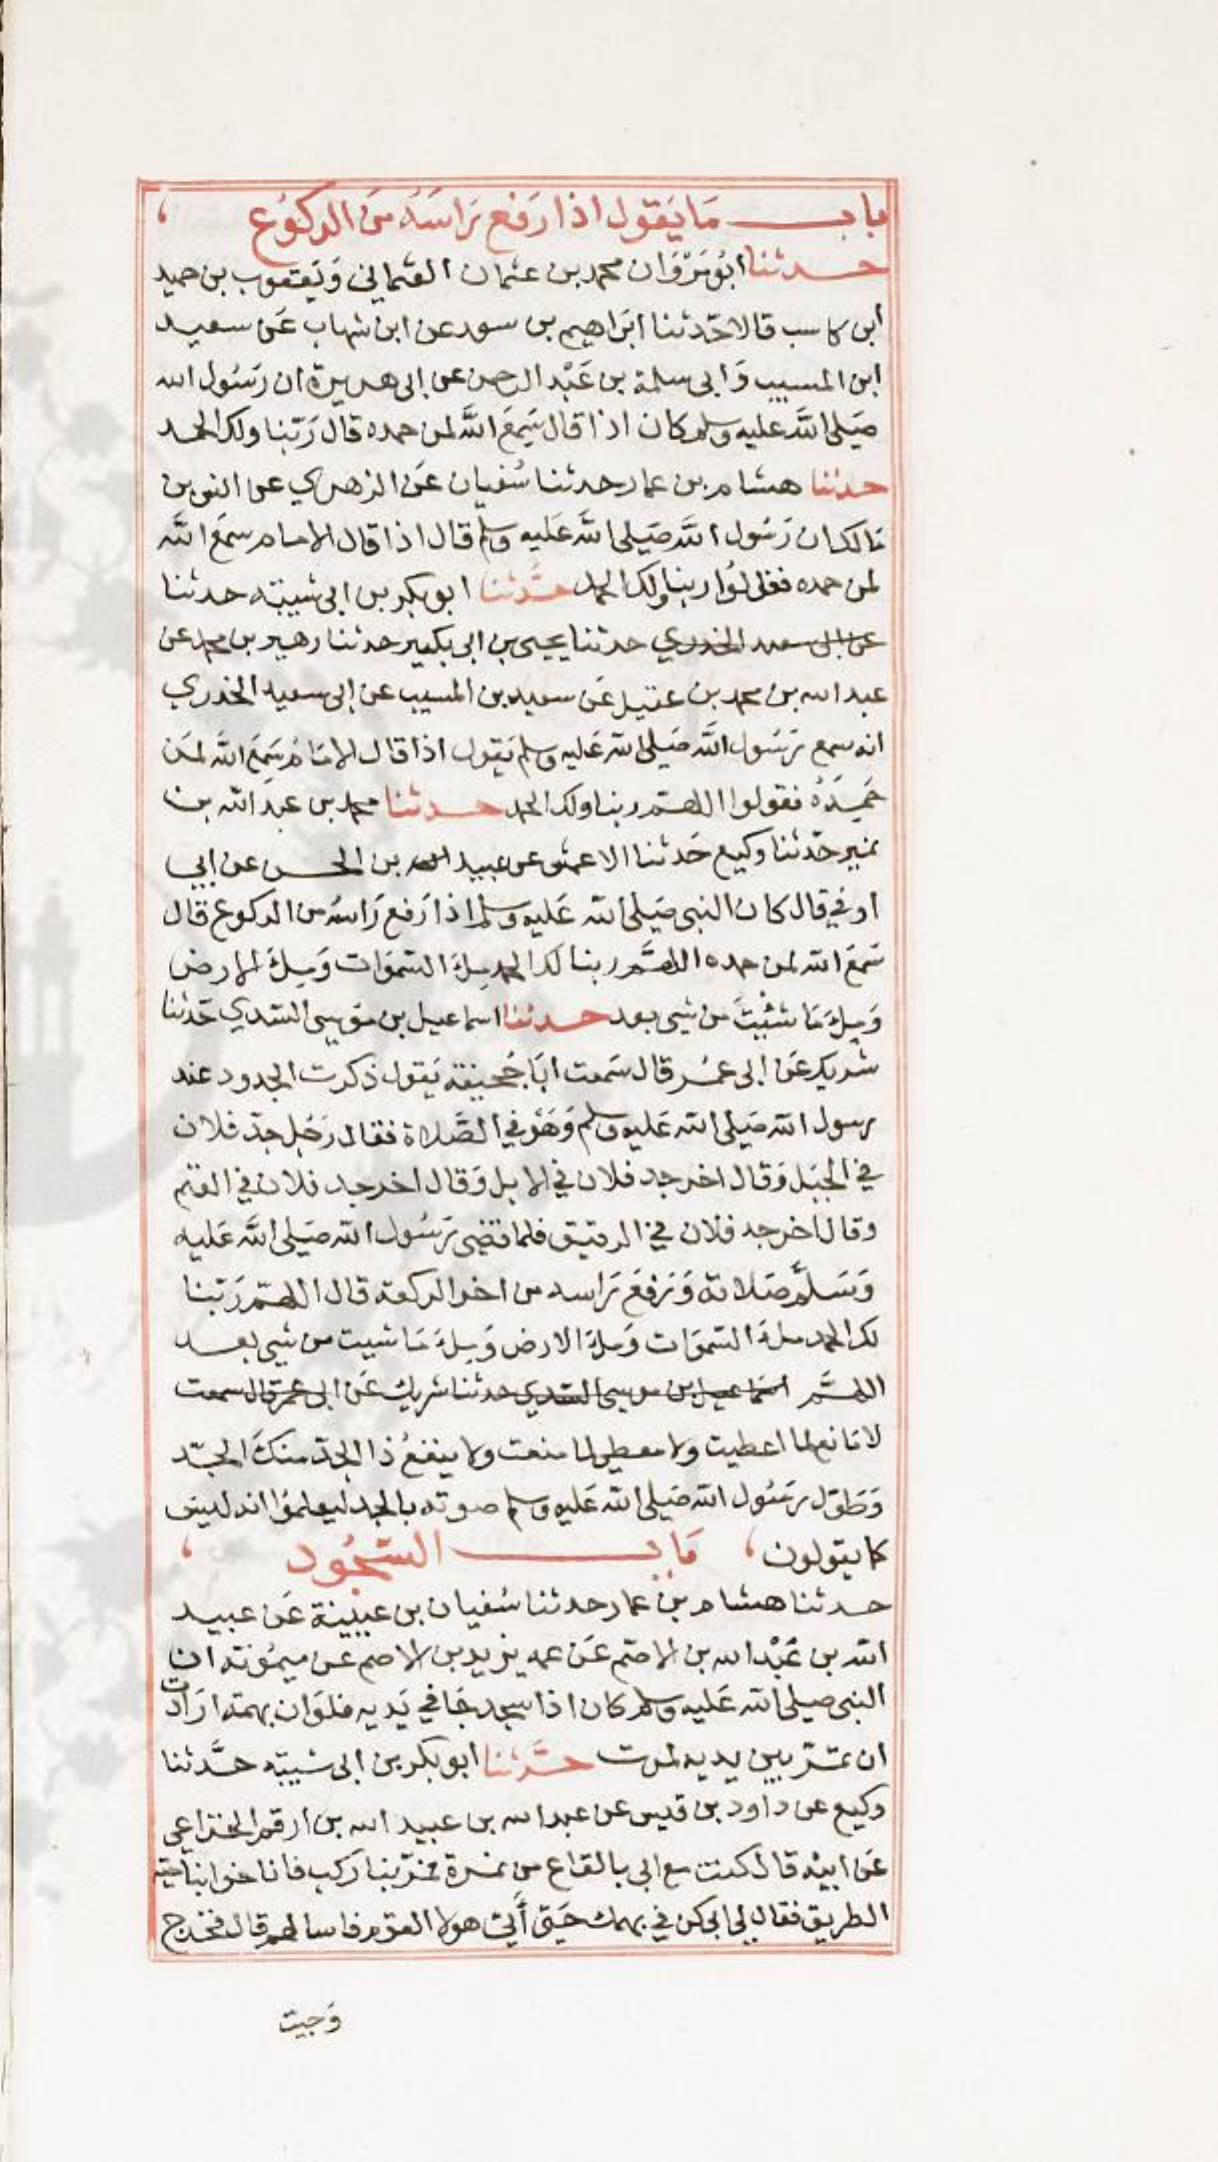 باب مَا يَقول اذا رَفع رَاسَهُ مِنَ الركوُع
حدثنا ابُو مَرْوَان محمد بن عثمان العثماني وَيَعقوب بن حميد
ابن كاسب قالا حَدثنا ابَراهيم بن سعد عن ابن شهاب عَن سعيد
ابن المسيب وَابي سلمة بن عَبْد الرحمن عن ابي هريرة ان رَسُول الله
صَلى اللَّه عليه وسلم كان اذا قال سَمِعَ اللَّه لمن حمده قال رَبّنا ولك الحمد
حدثنا هشام بن عمار حدثنا سُفيان عَن الزهري عن انس بن
مَالك ان رَسُول اللَّه صَلى اللَّه عَليه وسلم قال اذا قال الامام سمَع اللَّه
لمن حمده فقولوُا ربنا ولك الحمد حَدَّثنا ابو بكر بن ابي شيبَة حدثنا
عن ابي سعيد الخدري حدثنا يحيى بن ابي بكير حدثنا زهير بن محمد عن
عبد الله بن محمد بن عقيل عَن سعيد بن المسيب عن ابي سعيد الخدري
انه سمع رَسُول اللَّه صَلى الله عَليه وسلم يَقول اذا قال الامَامُ سَمِعَ اللَّه لمَن
حَمِدَهُ فقولوا اللهَمّ ربنا ولك الحمد حدثنا محمد بن عبَد الله بن
نمير حَدثنا وكيع حَدثنا الاعمش عن عبيد الله بن الحسن عن ابي
اوفي قال كان النبي صَلى الله عَليه وسلم اذا رَفع رَاسهُ من الركوع قال
سَمعَ الله لمن حمده اللهَمَّ ربنا لك الحمد مِلءَ السّموَات وَمِلءَ الارض
وَمِلءَ مَا شئْتَ من شي بعد حدثنا اسماعيل بن مُوسى السّدي حَدثنا
شريك عَن ابي عمُر قال سَمعت ابَا جُحيفة يَقول ذكرت الجدود عند
رسول الله صَلى الله عَليه وسلم وَهوَ في الصَّلاة فقال رَجُل جدّ فلان
في الخيَل وَقال اخر جد فلان في الابل وَقال اخر جد فلان في الغنم
وقال اخر جد فلان في الرقيق فلما قضى رَسُول الله صَلى اللَّه عَليه
وَسَلَّم صَلاته وَرَفعَ رَاسه من اخر الركعة قال اللهمّ رَبّنا
لك الحمد ملءَ السّموَات وَملءَ الارض وَمِلءَ مَا شيت من شي بعد
اللهَمَّ اسَماعيل بن موسى السّدي حدثنا شريك عَن ابي عمر قال سمعت
لا مَانع لما اعطيت ولا معطي لما منعت ولا ينفعُ ذا الجدّ منكَ الجَدّ
وَطَوّل رَسُول الله صَلى الله عَليه وسلم صوته بالجد ليعلموُا انه ليسَ
كما يقولون، بَاب السّجُود
حدثنا هشام بن عمار حدثنا سُفيان بن عيينة عَن عبيد
الله بن عَبْد الله بن الاصَم عَن عمه يزيد بن الاصم عن ميمُونة ان
النبي صلى الله عَليه وسلم كان اذا سجد جَافي يَديه فلوَ ان بهمة ارَادت
ان تمَرّ بين يديه لمرت حَدَّثنا ابو بكر بن ابي شيبَة حَدَّثنا
وكيع عن داود بن قيس عن عبد الله بن عبيد الله بن ارقم الخزاعي
عَن ابيْه قال كنت مع ابي بالقاع من نمرة فمرّ بنا ركب فاناخوا بناحية
الطريق فقال لي ابي كن في بهمك حَتى أَتي هولا القوم فاسالهم قال فخرج
وَجيت